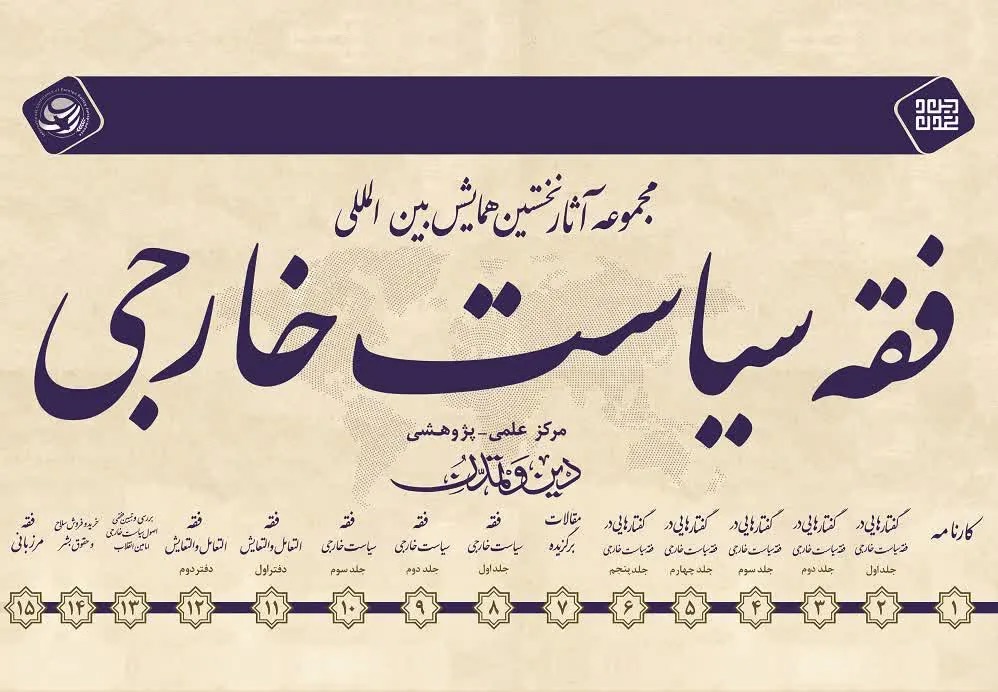 دین و تمدن
مجموعه آثار نخستین همایش بین المللی
فقه سیاست خارجی
مرکز علمی - پژوهشی
دین و تمدن
کارنامه
۱
گفتارهایی در
فقه سیاست خارجی
جلد اول
۲
گفتارهایی در
فقه سیاست خارجی
جلد دوم
۳
گفتارهایی در
فقه سیاست خارجی
جلد سوم
۴
گفتارهایی در
فقه سیاست خارجی
جلد چهارم
۵
گفتارهایی در
فقه سیاست خارجی
جلد پنجم
۶
مقالات
برگزیده
۷
فقه
سیاست خارجی
جلد اول
۸
فقه
سیاست خارجی
جلد دوم
۹
فقه
سیاست خارجی
جلد سوم
۱۰
فقه
التعامل والتعایش
دفتر اول
۱۱
فقه
التعامل والتعایش
دفتر دوم
۱۲
بررسی و تبیین فقهی
اصول سیاست خارجی
امامین انقلاب
۱۳
خرید و فروش سلاح
و حقوق بشر
۱۴
فقه
مرزبانی
۱۵